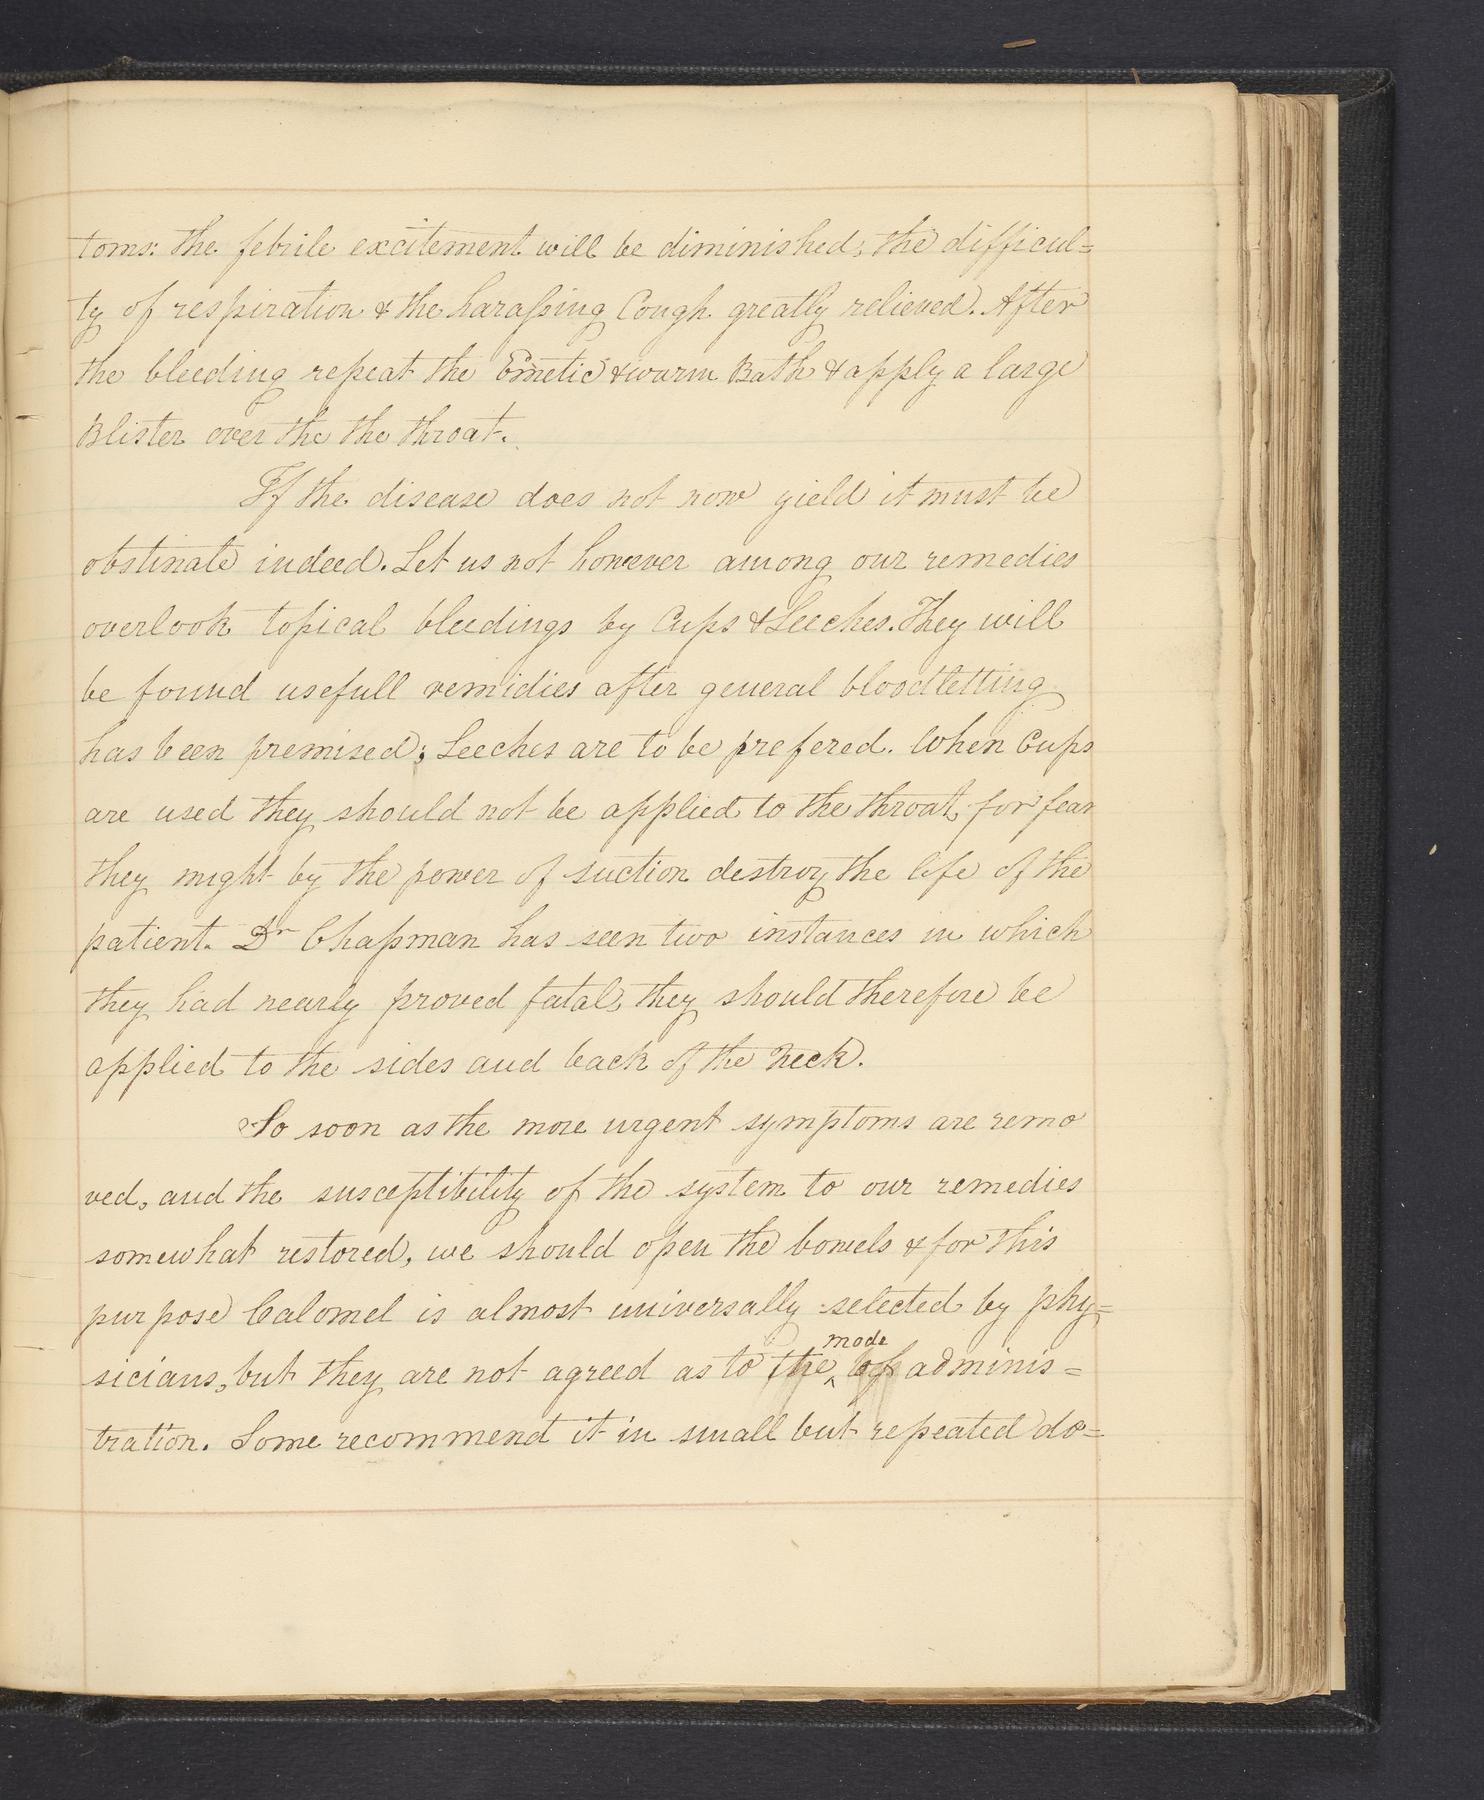 toms: the febrile excitement will be diminished; the difficul=
ty of respiration & the harassing Cough greatly relieved. After
the bleeding repeat the Emetic & warm Bath & apply a large
Blister over the the throat.
If the disease does not now yield it must be
obstinate indeed. Let us not however among our remedies
overlook topical bleedings by Cups & Leeches. They will
be found usefull remidies after general bloodletting
has been premised; Leeches are to be prefered. When Cups
are used they should not be applied to the throat, for fear
they might by the power of suction destroy the life of the
patient. Dr Chapman has seen two instances in which
they had nearly proved fatal, they should therefore be
applied to the sides and back of the Neck.
So soon as the more urgent symptoms are remo
ved, and the susceptibility of the system to our remedies
somewhat restored, we should open the bowels & for this
purpose Calomel is almost universally selected by phy=
sicians, but they are not agreed as to the ^mode of adminis=
tration. Some recommend it in small but repeated do=